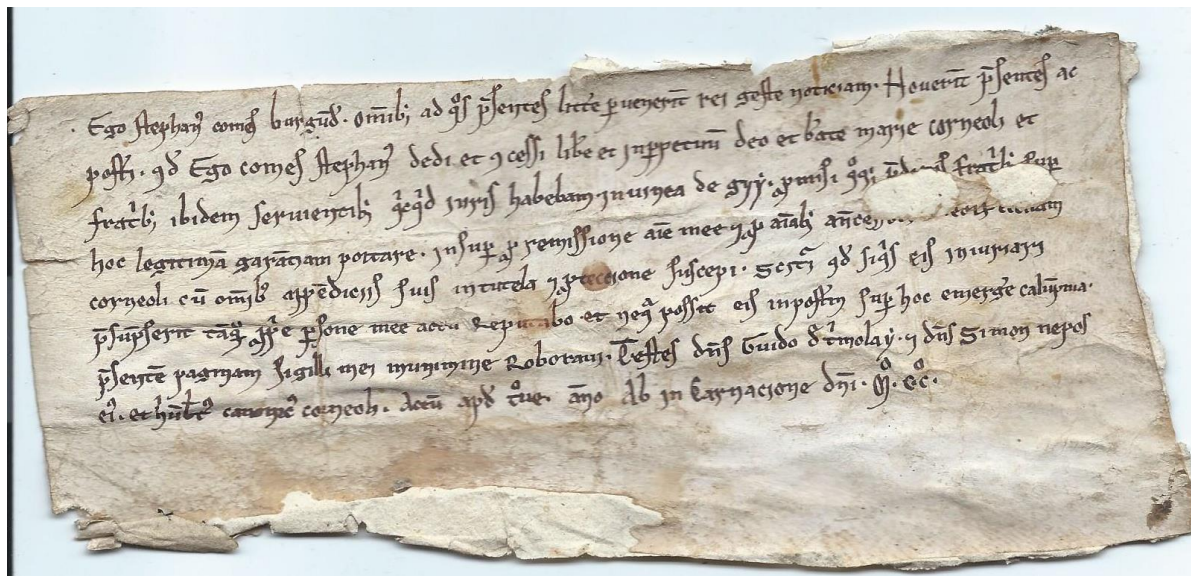 Ego stephan9 comes burgūd. om̄ib; ad q°s p̄sentes litt'e p̱venerīt rei geste noticiam. Noverīt p̄sentes ac
post'i. qd' Ego comes stephan9 dedi et ꝯcessi lib'e et inp̱petuū deo et b'ate marie corneoli et
fr̄atrib; ibidem servientib; q'cq'd iuris habebam in vinea de gyy. ꝓmisi q°q; fratrib; sup̱
hoc legitimā garātiam portare. insup̱ ꝓ remissione aīe mee ⁊ ꝓ aīab;
corneoli cū om̄ib; appēdiciis suis in tutela ⁊ ꝓtectione suscepi. qd' siq's eis iniuriari
p̄sūpserit tāq̄ p̱sone mee actū reputabo et neq̄ possit eis inpost'ū sup̱ hoc emerg'e calūpnia.
p̄sentē paginam sigilli mei munimine roboravi. Testes dn̄s Guido d' t'molay. ⁊ dn̄s Simon nepos
ei9. et canonic9 corneoli. Actū apd' āno Ab in carnacione dn̄i. M°. cc°.